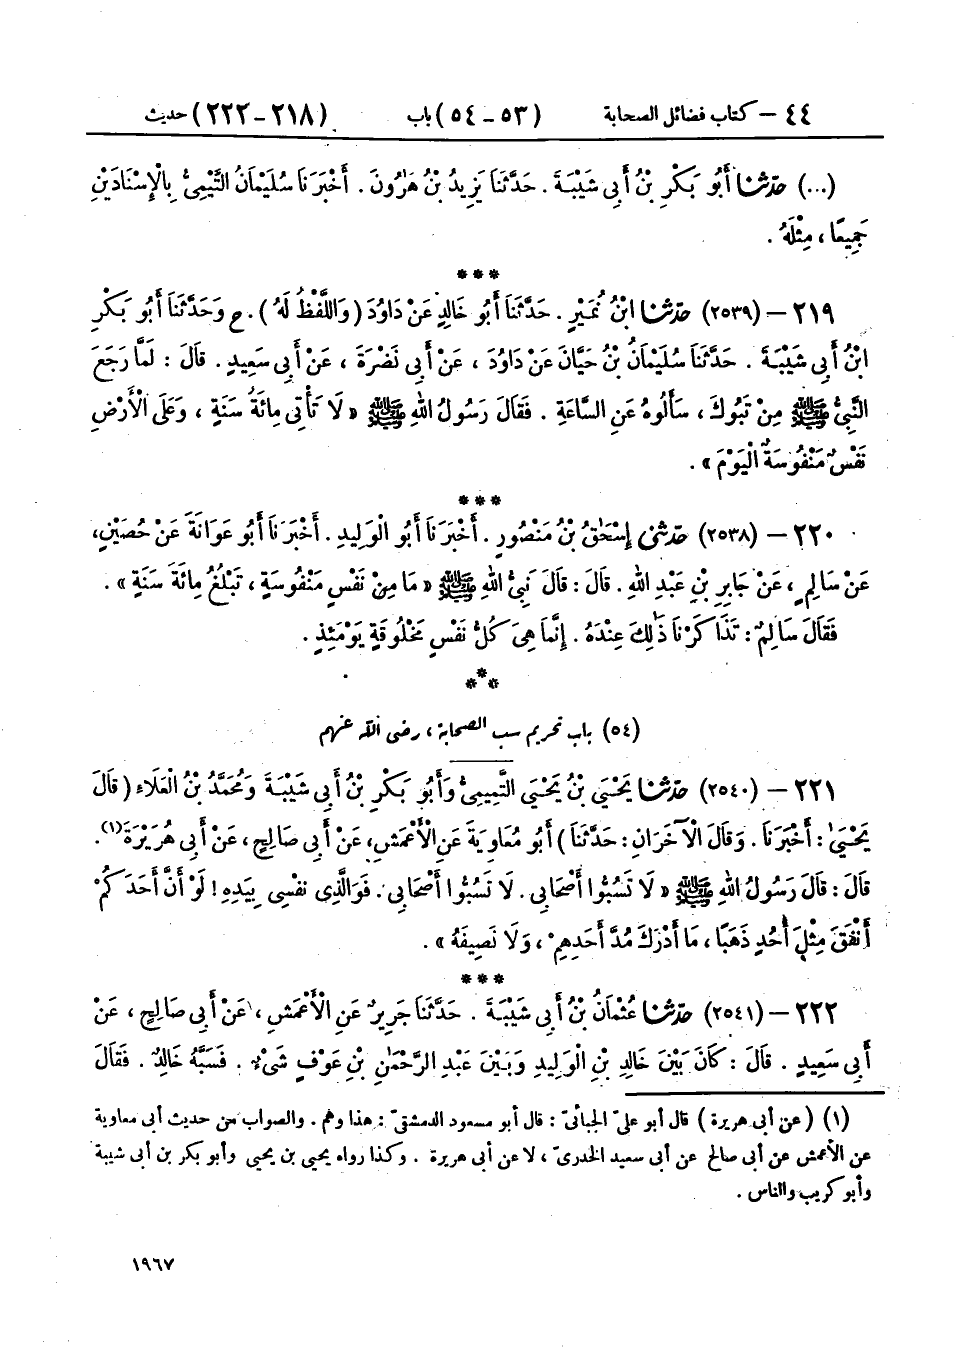 ٤٤ – كتاب فضائل الصحابة (٥٣-٥٤) باب (٢١٨-٢٢٢) حديث
(...) حَدَّثَنَا أَبُو بَكْرِ بْنُ أَبِي شَيْبَةَ . حَدَّثَنَا يَزِيدُ بْنُ هَرُونَ . أَخْبَرَنَا سُلَيْمَانُ التَّيْمِيُّ بِالْإِسْنَادَيْنِ
جَمِيعًا ، مِثْلَهُ .
***
٢١٩ – (٢٥٣٩) حَدَّثَنَا ابْنُ نُمَيْرٍ . حَدَّثَنَا أَبُو خَالِدٍ عَنْ دَاوُدَ (وَاللَّفْظُ لَهُ) . ح وَحَدَّثَنَا أَبُو بَكْرِ
ابْنُ أَبِي شَيْبَةَ . حَدَّثَنَا سُلَيْمَانُ بْنُ حَيَّانَ عَنْ دَاوُدَ ، عَنْ أَبِي نَضْرَةَ ، عَنْ أَبِي سَعِيدٍ . قَالَ : لَمَّا رَجَعَ
النَّبِيُّ ﷺ مِنْ تَبُوكَ ، سَأَلُوهُ عَنِ السَّاعَةِ . فَقَالَ رَسُولُ اللهِ ﷺ « لَا تَأْتِي مِائَةُ سَنَةٍ ، وَعَلَى الْأَرْضِ
نَفْسٌ مَنْفُوسَةٌ الْيَوْمَ » .
***
٢٢٠ – (٢٥٣٨) حَدَّثَنِي إِسْحَٰقُ بْنُ مَنْصُورٍ . أَخْبَرَنَا أَبُو الْوَلِيدِ . أَخْبَرَنَا أَبُو عَوَانَةَ عَنْ حُصَيْنٍ،
عَنْ سَالِمٍ ، عَنْ جَابِرِ بْنِ عَبْدِ اللهِ . قَالَ : قَالَ نَبِيُّ اللهِ ﷺ « مَا مِنْ نَفْسٍ مَنْفُوسَةٍ ، تَبْلُغُ مِائَةَ سَنَةٍ » .
فَقَالَ سَالِمٌ : تَذَاكَرْنَا ذَٰلِكَ عِنْدَهُ . إِنَّمَا هِيَ كُلُّ نَفْسٍ مَخْلُوقَةٍ يَوْمَئِذٍ .
***
(٥٤) باب تحريم سب الصحابة ، رضى الله عنهم
٢٢١ – (٢٥٤٠) حَدَّثَنَا يَحْيَىٰ بْنُ يَحْيَى التَّمِيمِيُّ وَأَبُو بَكْرِ بْنُ أَبِي شَيْبَةَ وَمُحَمَّدُ بْنُ الْعَلَاءِ (قَالَ
يَحْيَىٰ : أَخْبَرَنَا . وَقَالَ الْآخَرَانِ : حَدَّثَنَا) أَبُو مُعَاوِيَةَ عَنِ الْأَعْمَشِ، عَنْ أَبِي صَالِحٍ ، عَنْ أَبِي هُرَيْرَةَ(١).
قَالَ : قَالَ رَسُولُ اللهِ ﷺ « لَا تَسُبُّوا أَصْحَابِي . لَا تَسُبُّوا أَصْحَابِي . فَوَالَّذِي نَفْسِي بِيَدِهِ ! لَوْ أَنَّ أَحَدَكُمْ
أَنْفَقَ مِثْلَ أُحُدٍ ذَهَبًا ، مَا أَدْرَكَ مُدَّ أَحَدِهِمْ ، وَلَا نَصِيفَهُ » .
***
٢٢٢ – (٢٥٤١) حَدَّثَنَا عُثْمَانُ بْنُ أَبِي شَيْبَةَ . حَدَّثَنَا جَرِيرٌ عَنِ الْأَعْمَشِ ، عَنْ أَبِي صَالِحٍ ، عَنْ
أَبِي سَعِيدٍ . قَالَ : كَانَ بَيْنَ خَالِدِ بْنِ الْوَلِيدِ وَبَيْنَ عَبْدِ الرَّحْمَٰنِ بْنِ عَوْفٍ شَيْءٌ . فَسَبَّهُ خَالِدٌ . فَقَالَ
(١) (عن أبى هريرة) قال أبو علىّ الجبائىّ : قال أبو مسعود الدمشقىّ : هذا وهم . والصواب من حديث أبى معاوية
عن الأعمش عن أبى صالح عن أبى سعيد الخدرىّ ، لا عن أبى هريرة . وكذا رواه يحيى بن يحيى وأبو بكر بن أبى شيبة
وأبو كريب والناس .
١٩٦٧